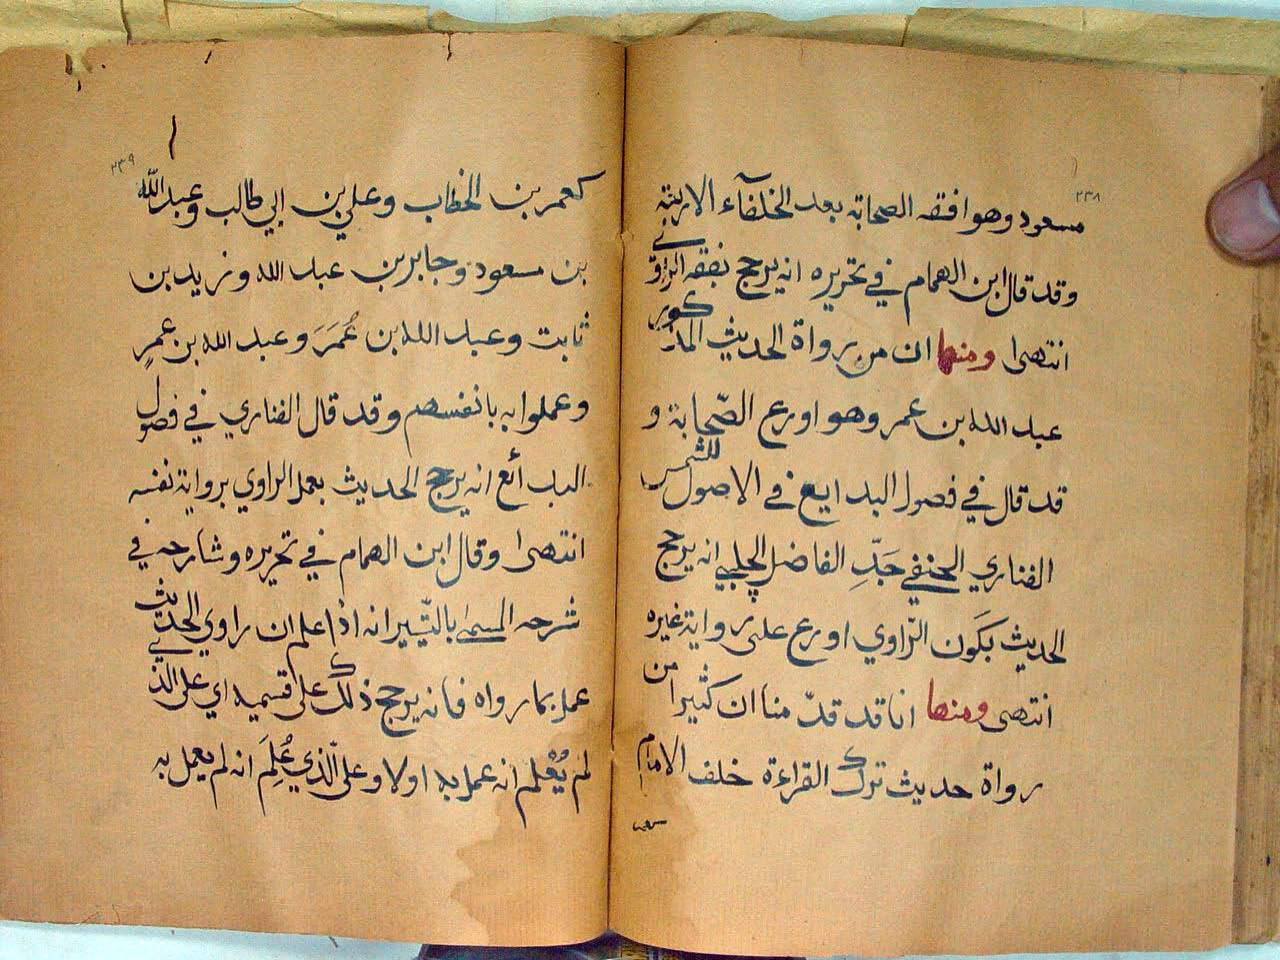 ٢٣٨
مسعود وهو افقه الصحابة بعد الخلفآء الاربعة
وقد قال ابن الهمام في تحريره انه يرجح بفقه الراوي
انتهى ومنها ان من رواة الحديث المذكور
عبد الله بن عمر وهو اورع الصّحابة و
قد قال في فصول البدايع في الاصول للشمس
الفناري الحنفي جَدِّ الفاضل الچلبي انه يرجح
الحديث بكَون الرّاوي اورع على رواية غيره
انتهى ومنها انا قد قدّمنا ان كثيرا من
رواة حديث ترك القراءة خلف الامام
كعمر
٢٣٩
كعمر بن الخطاب وعلي بن ابي طالب وعبد اللّه
بن مسعود وجابر بن عبد الله وزيد بن
ثابت وعبد الله بن عُمَرَ وعبد الله بن عمرٍ
وعملوا به بانفسهم وقد قال الفناري في فصول
البدائع انه يرجح الحديث بعمل الراوي برواية نفسه
انتهى وقال ابن الهمام في تحريره وشارحه في
شرحه المسمى بالتّيسير انه اذا علم ان راوي الحديث
عمل بما رواه فانه يرجح ذلك على قسميه اي على الذي
لم يُعْلم انه عمل به اولا وعلى الّذي عُلِمَ انه لم يعمل به